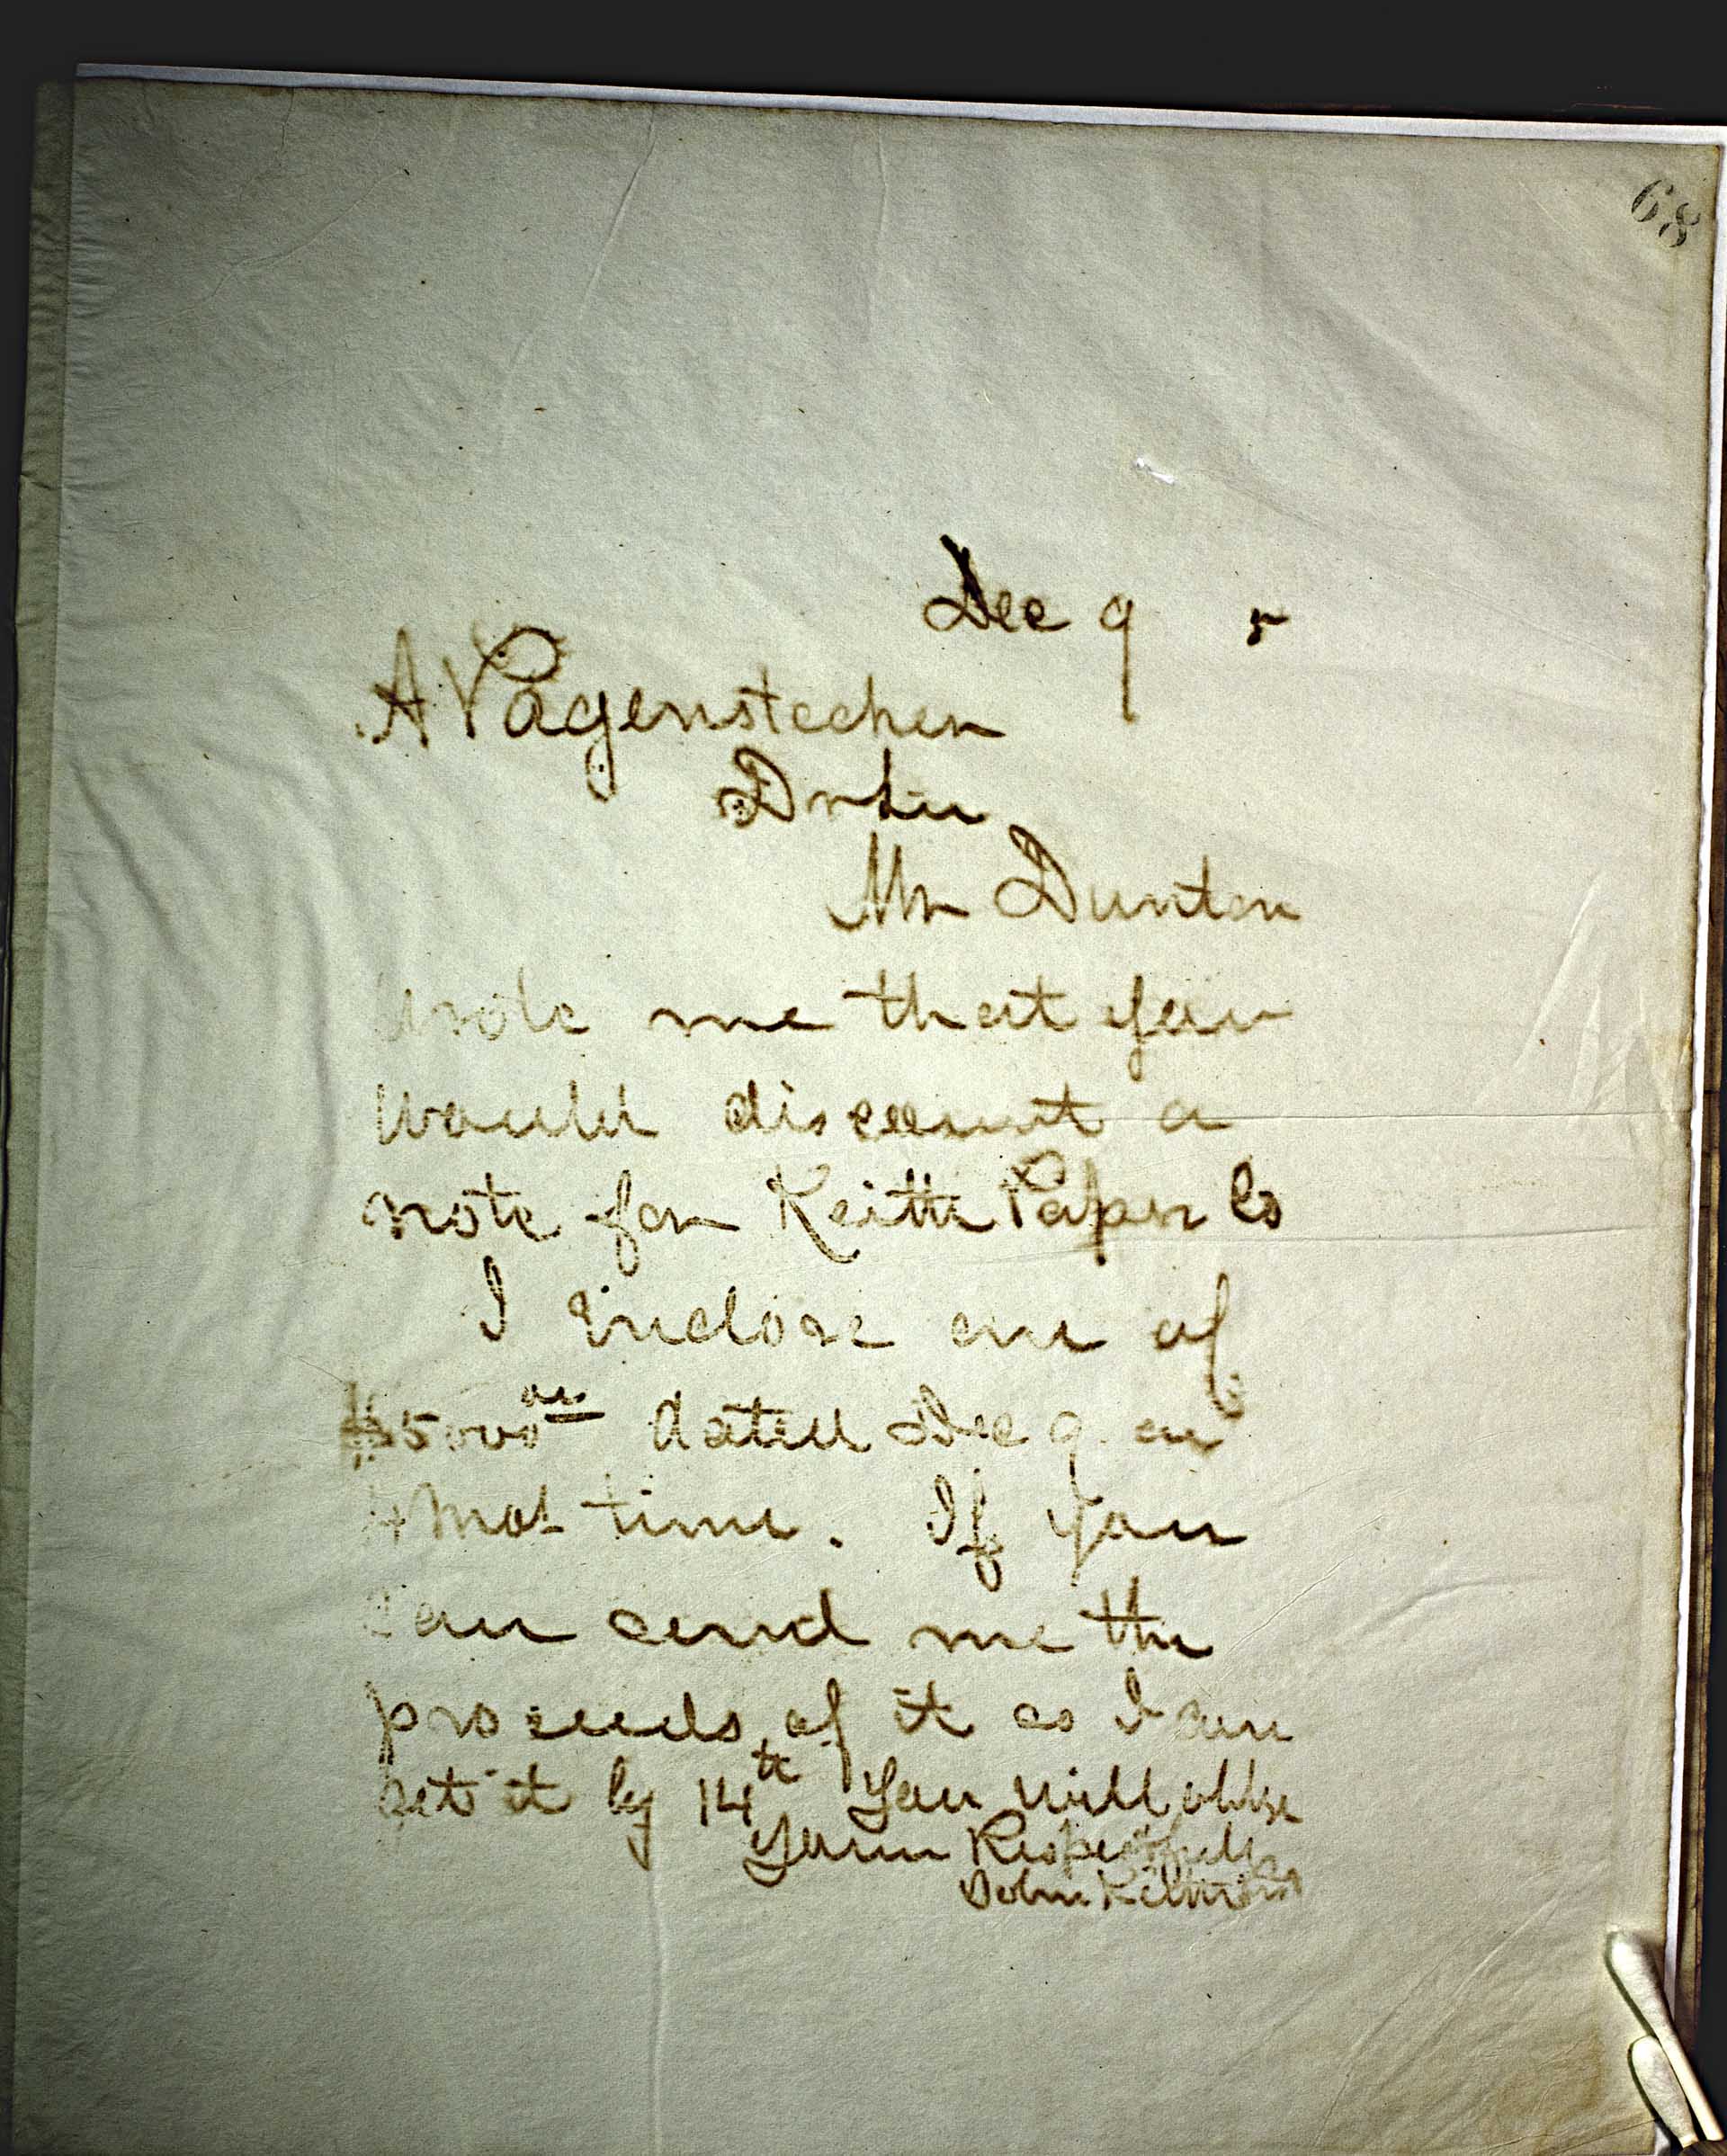 68
Dec 9 5
A Pagenstecher
Dr Sir
Mr Dunton
wrote me that you
would discount a
note for Keith Paper Co
I inclose one of
$5000 00 dated Dec 9 on
4 mos time. If you
can send me the
proceeds of it so I can
get it by 14th You will oblige
Yours Respectfully
John Keith